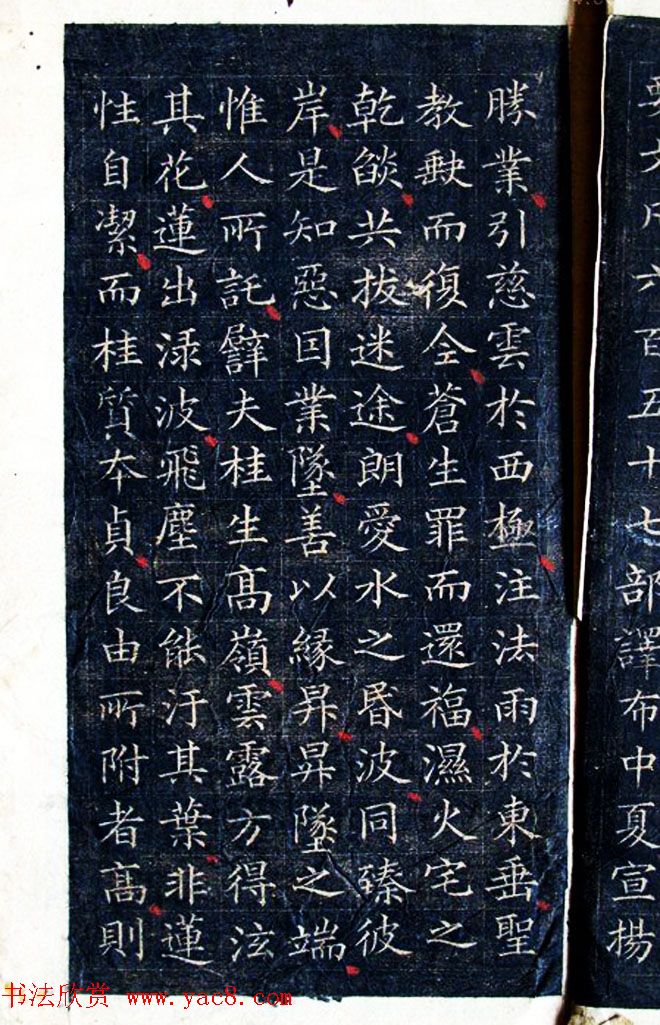 要文凡六百五十七部譯布中夏宣揚
勝業引慈雲於西極注法雨於東垂聖
教缺而復全蒼生罪而還福濕火宅之
乾燄共拔迷途朗愛水之昬波同臻彼
岸是知惡因業墜善以緣昇昇墜之端
惟人所託譬夫桂生髙嶺雲露方得泫
其花蓮出淥波飛塵不能汙其葉非蓮
性自潔而桂質本貞良由所附者髙則
书法欣赏 www.yac8.com